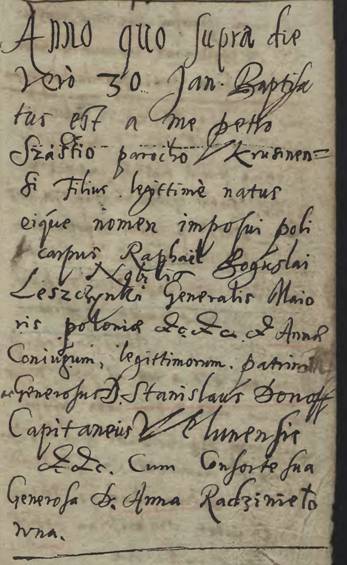 Anno quo supra die
Vero 30 Jan. Baptisa
tus est a me petro
Szastio parocho Krusinen=
si Filius legittimè natus
eique nomen imposui poli
carpus Raphaël Boguslai
Nobilis
Leszczynski Generalis Maio
ris poloniæ &c &c. & Annæ
Coniugum, legittimorum. patrini
Generosus D. Stanislaus Donoff
Capitaneus Velunensis
&c &c. Cum Consorte sua
Generosa D. Anna Radzinieto
wna.